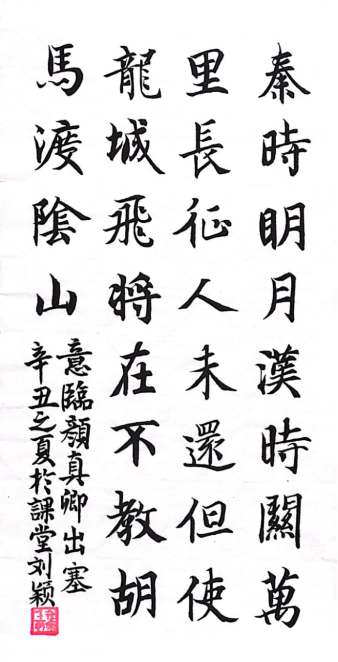 秦時明月漢時關萬
里長征人未還但使
龍城飛將在不教胡
馬渡陰山
意臨顏真卿出塞
辛丑之夏於課堂刘颖